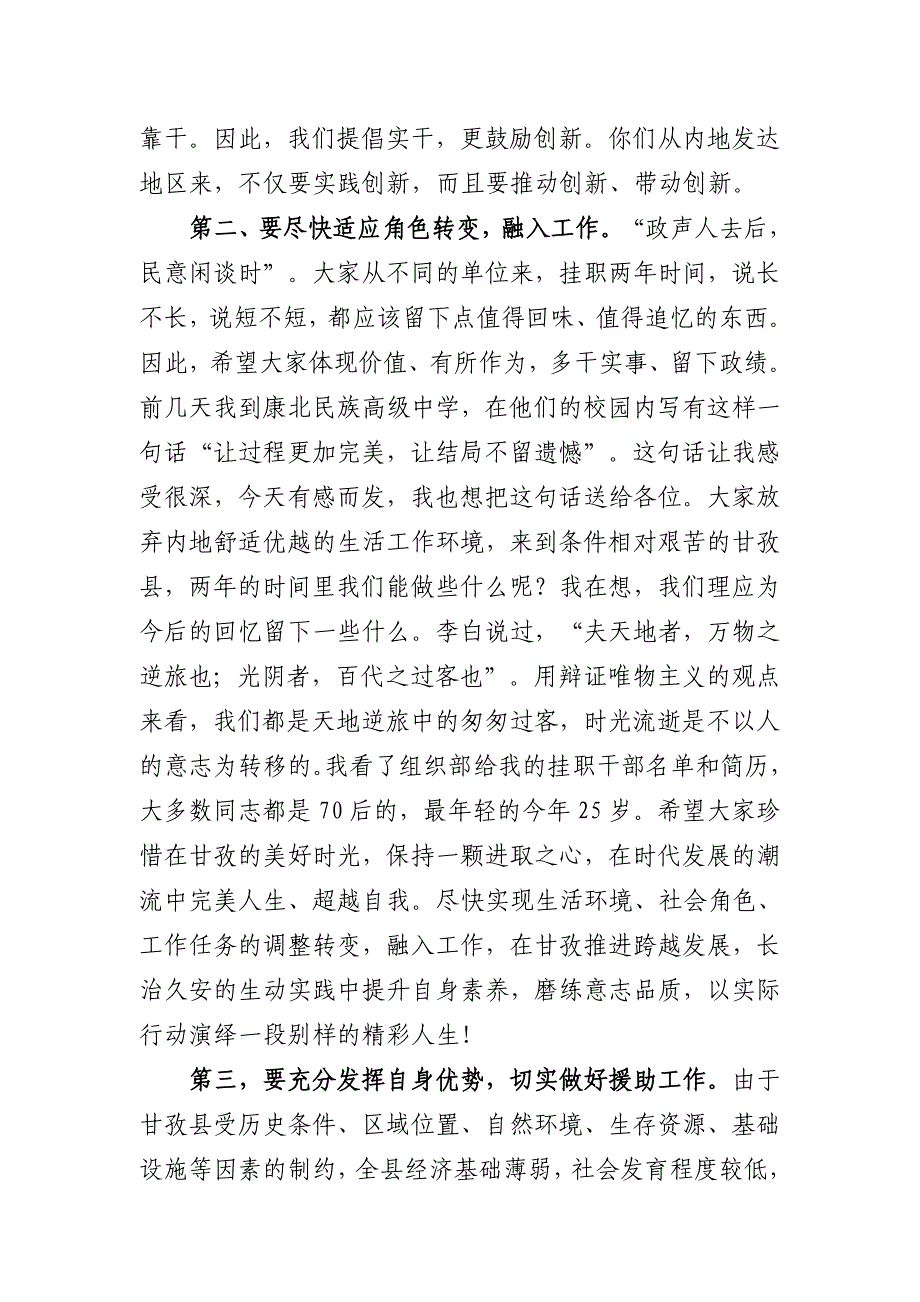 靠干。因此，我们提倡实干，更鼓励创新。你们从内地发达
地区来，不仅要实践创新，而且要推动创新、带动创新。
第二、要尽快适应角色转变，融入工作。“政声人去后，
民意闲谈时”。大家从不同的单位来，挂职两年时间，说长
不长，说短不短，都应该留下点值得回味、值得追忆的东西。
因此，希望大家体现价值、有所作为，多干实事、留下政绩。
前几天我到康北民族高级中学，在他们的校园内写有这样一
句话“让过程更加完美，让结局不留遗憾”。这句话让我感
受很深，今天有感而发，我也想把这句话送给各位。大家放
弃内地舒适优越的生活工作环境，来到条件相对艰苦的甘孜
县，两年的时间里我们能做些什么呢？我在想，我们理应为
今后的回忆留下一些什么。李白说过，“夫天地者，万物之
逆旅也；光阴者，百代之过客也”。用辩证唯物主义的观点
来看，我们都是天地逆旅中的匆匆过客，时光流逝是不以人
的意志为转移的。我看了组织部给我的挂职干部名单和简历，
大多数同志都是 70 后的，最年轻的今年 25 岁。希望大家珍
惜在甘孜的美好时光，保持一颗进取之心，在时代发展的潮
流中完美人生、超越自我。尽快实现生活环境、社会角色、
工作任务的调整转变，融入工作，在甘孜推进跨越发展，长
治久安的生动实践中提升自身素养，磨练意志品质，以实际
行动演绎一段别样的精彩人生！
第三，要充分发挥自身优势，切实做好援助工作。由于
甘孜县受历史条件、区域位置、自然环境、生存资源、基础
设施等因素的制约，全县经济基础薄弱，社会发育程度较低，